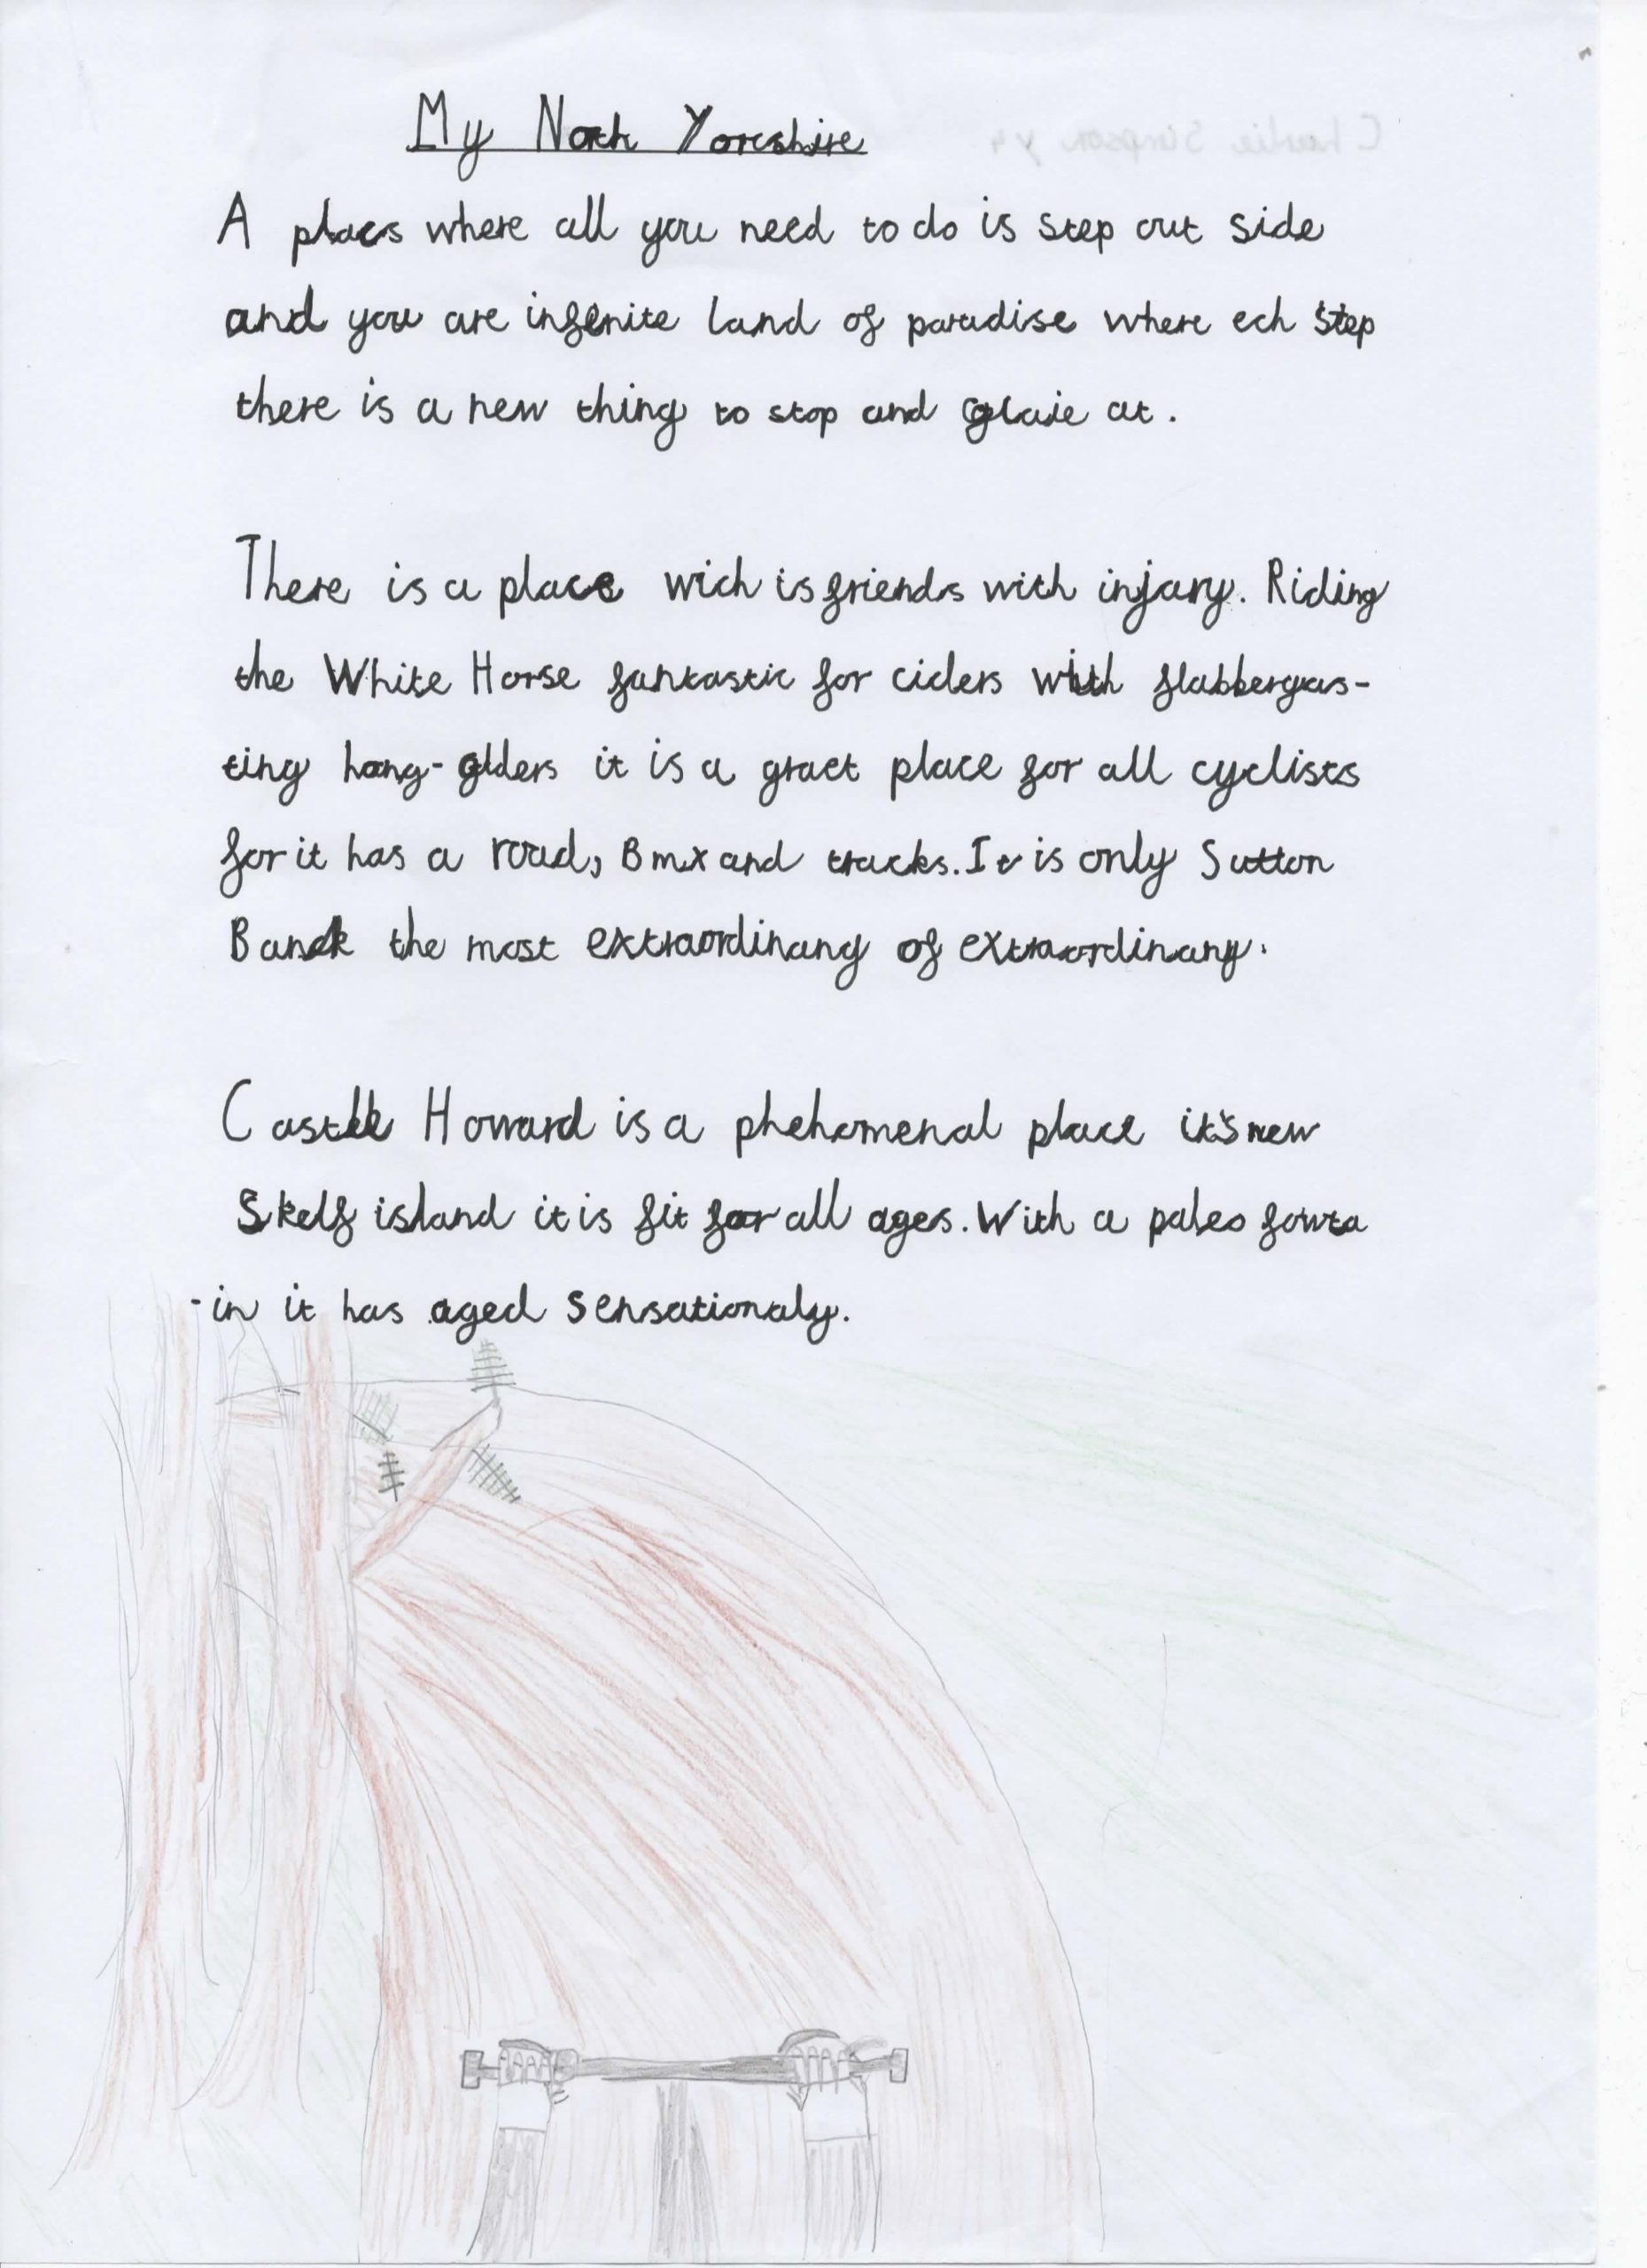 My North Yorcshire
Charlie Simpson y4
A placs where all you need to do is step out side
and you are infenite land of paradise where ech step
there is a new thing to stop and glaie at.
There is a place wich is friends with injary. Riding
the White Horse fantastic for ciders with flabbergas-
ting hang-glders it is a graet place for all cyclists
for it has a road, Bmx and tracks. It is only Sutton
Banck the most extraordinany of extraordinany.
Castle Howard is a phehomenal place it's new
Skelf island it is fit for all ages. With a pales fowta
-in it has aged sensationaly.